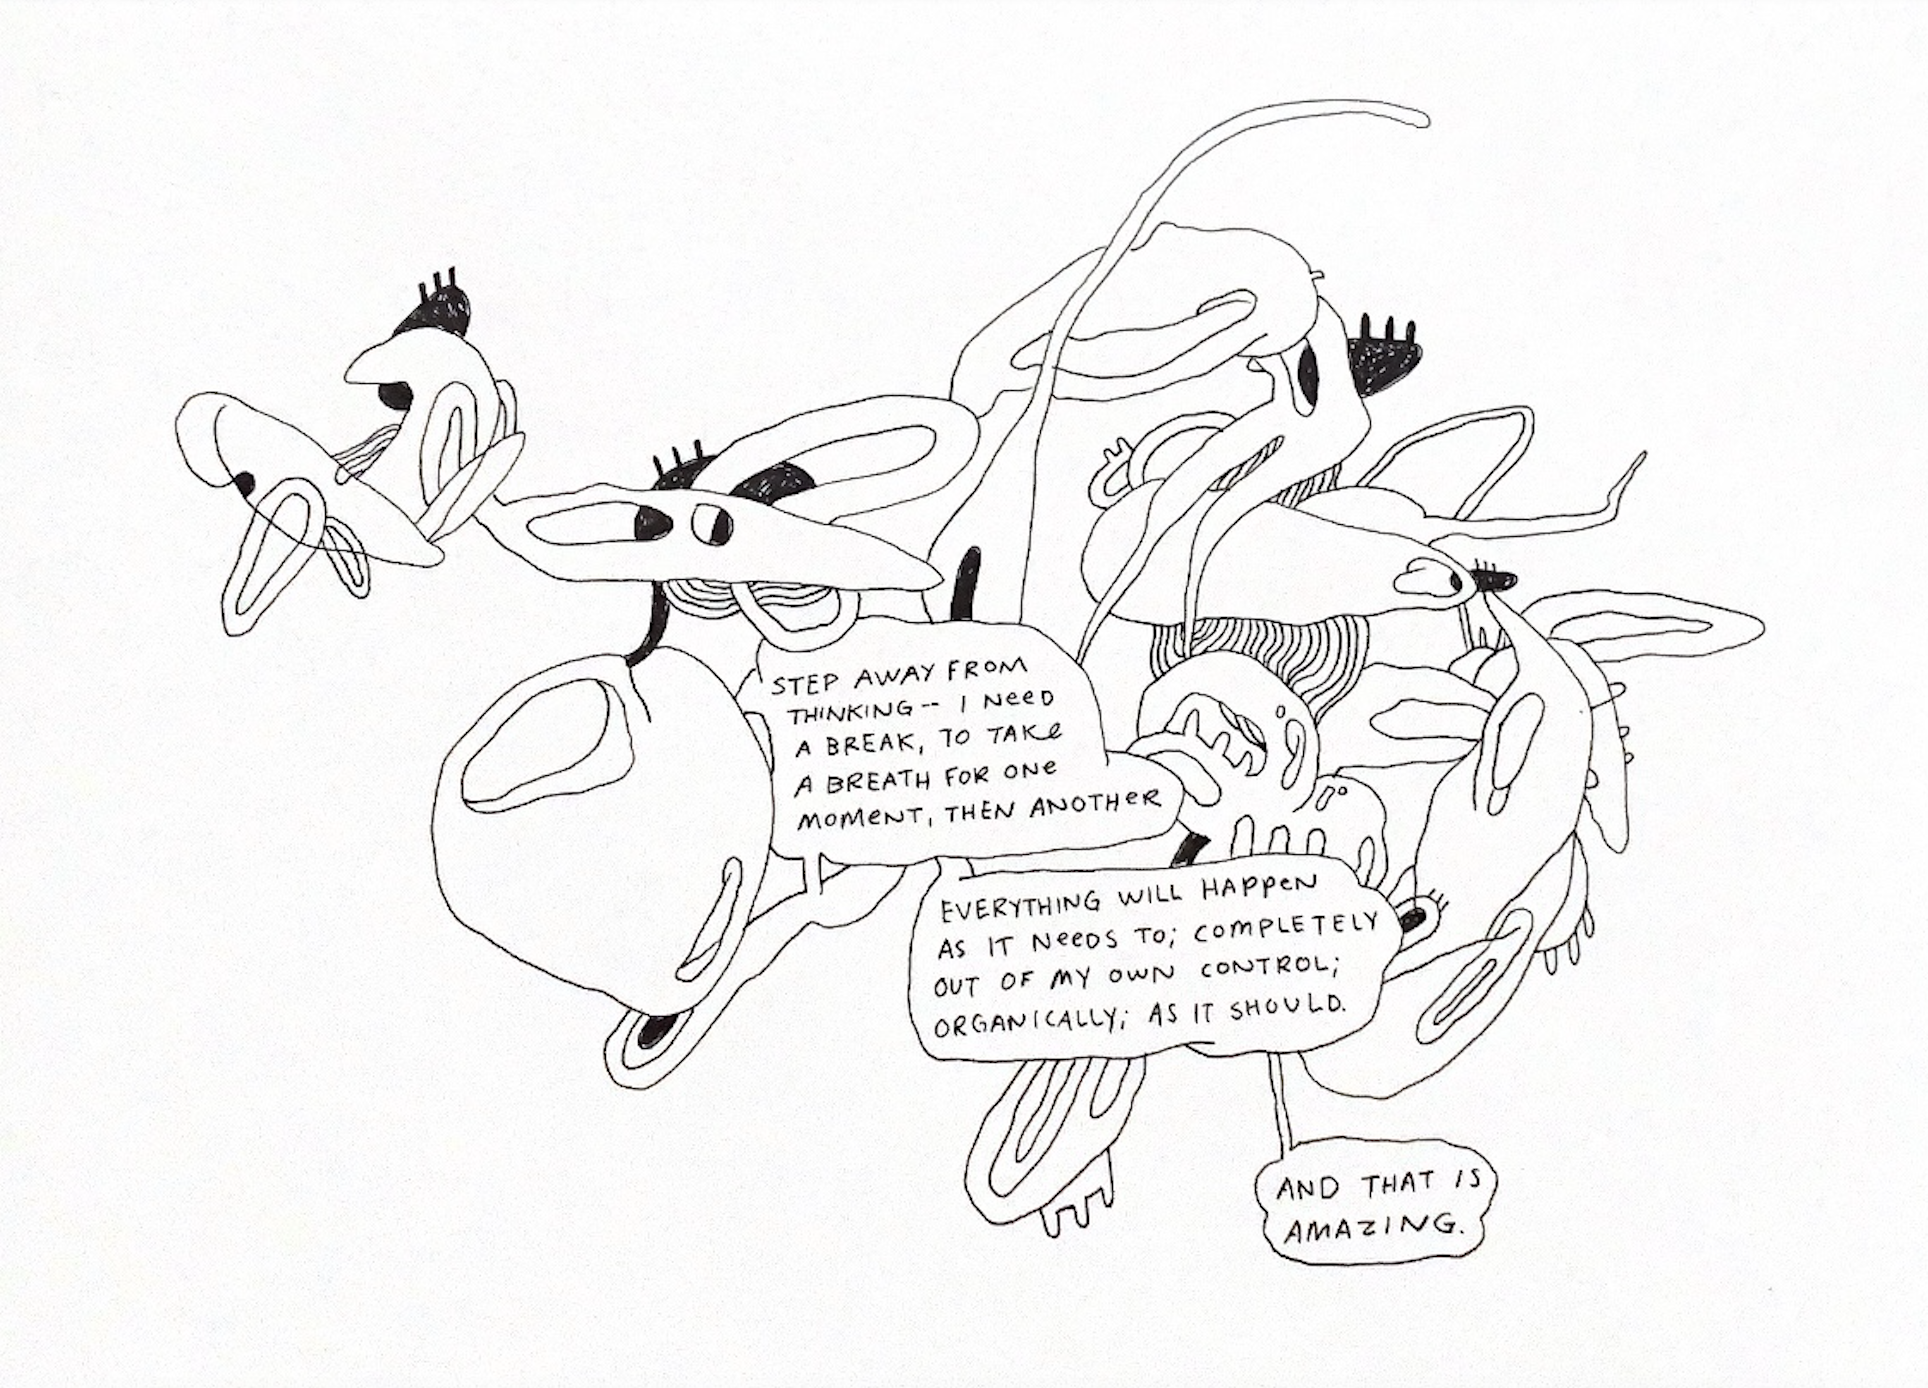 STEP AWAY FROM
THINKING -- I NEED
A BREAK, TO TAKE
A BREATH FOR ONE
MOMENT, THEN ANOTHER
EVERYTHING WILL HAPPEN
AS IT NEEDS TO; COMPLETELY
OUT OF MY OWN CONTROL;
ORGANICALLY; AS IT SHOULD.
AND THAT IS
AMAZING.